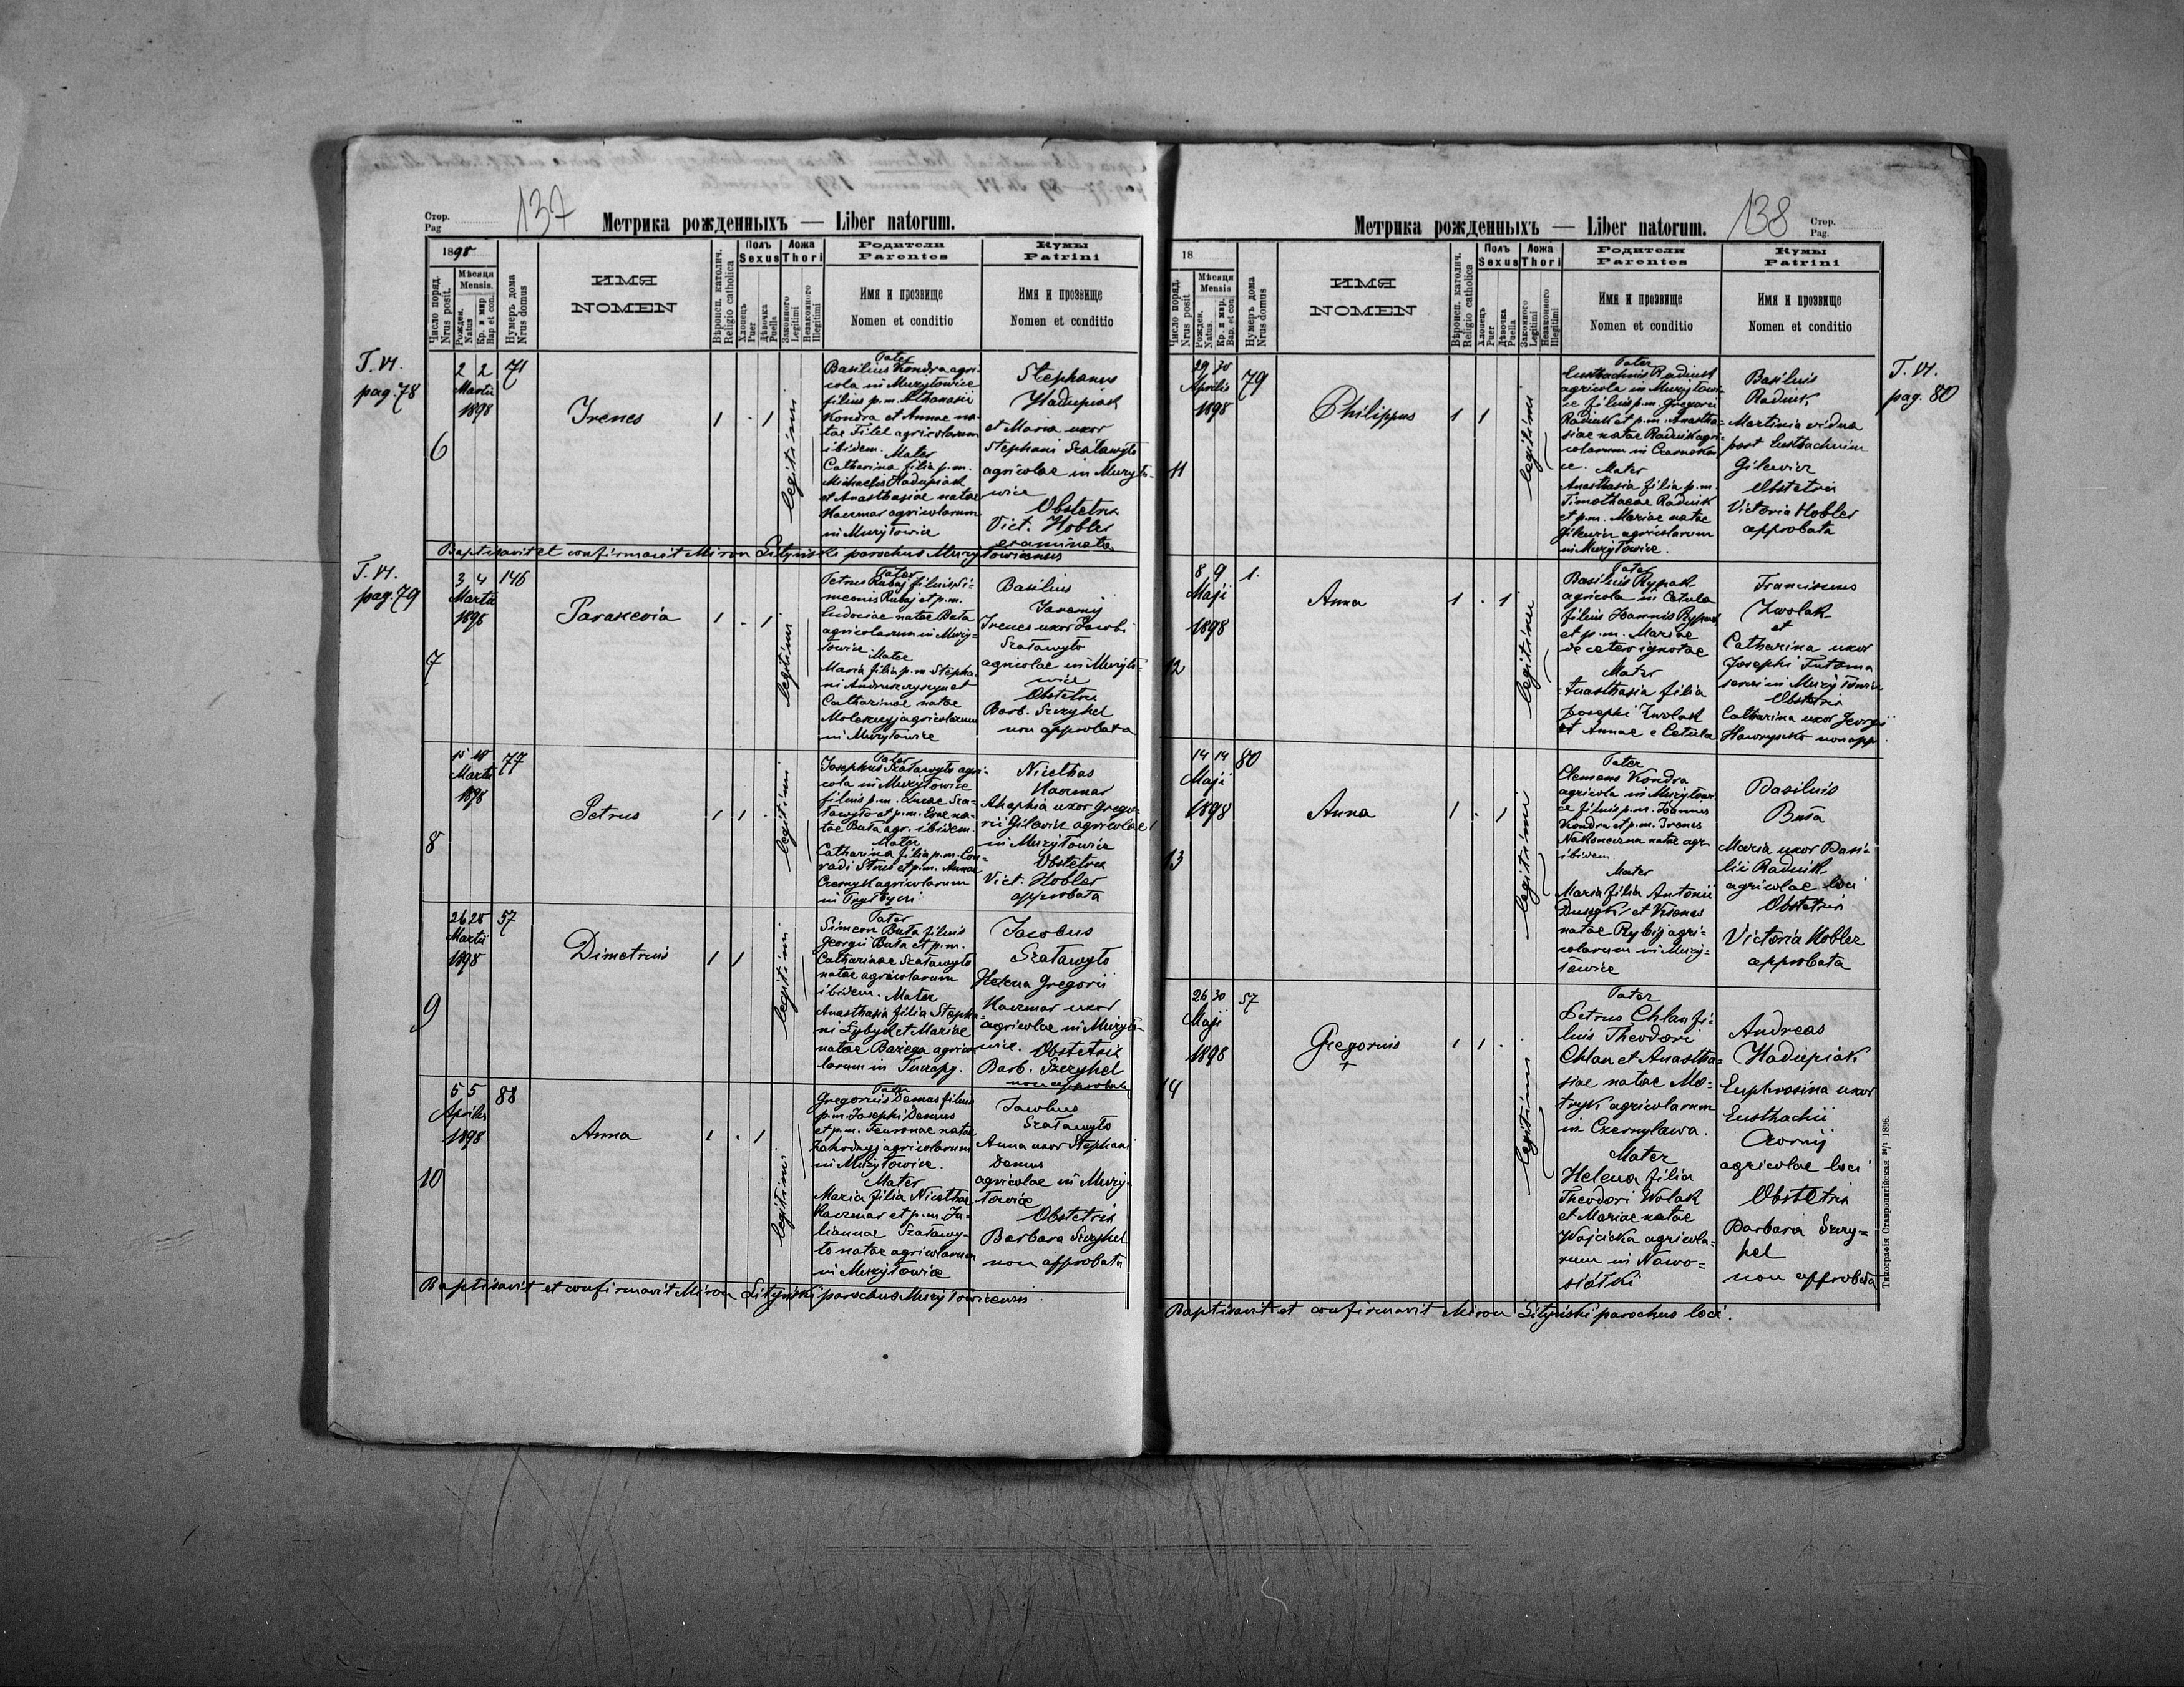 Стор.
Pag
137
Метрика рожденныхъ — Liber natorum.
1898
Число поряд.
Nrus posit.
Мѣсяця
Mensis.
Рожден.
Natus
Кр. и мир
Bap et con.
Нумеръ дома
Nrus domus
ИМЯ
NOMEN
Вѣроисп. католич.
Religio catholica
Полъ
Sexus
Хлопецъ
Puer
Дѣвочка
Puella
Ложа
Thori
Законного
Legitimi
Незаконного
Illegitimi
Родители
Parentes
Имя и прозвище
Nomen et conditio
Кумы
Patrini
Имя и прозвище
Nomen et conditio
T. VI.
pag. 78
6
2 2
Martii
1898
71
Irenes
1 . 1
legitimi
Pater
Basilius Kondra agri-
cola in Mużyłowice
filius p.m. Athanasii
Kondra et Annae na-
tae Fitel agricolarum
ibidem. Mater
Catharina filia p.m.
Michaelis Hadupiak
et Anasthasiae natae
Kaczmar agricolarum
in Mużyłowice
Stephanus
Hadupiak
et Maria uxor
Stephani Szaławyło
agricolae in Mużyło-
wice
Obstetrix
Vict. Hobler
examinata
Baptisavit et confirmavit Miron Lityński parochus Mużyłowicensis
T. VI.
pag. 79
7
3 4
Martii
1898
146
Parascevia
1 . 1
legitimi
Pater
Petrus Rubaj filius Si-
meonis Rubaj et p.m.
Eudociae natae Buła
agricolarum in Muży-
łowice Mater
Maria filia p.m. Stepha-
ni Andruszczyszyn et
Catharinae natae
agricolarum
in Mużyłowice
Basilius
Jaremij
Irenes uxor Jacobi
Szaławyło
agricolae in Mużyło-
wice
Obstetrix
Barb. Szczyhel
non approbata
8
15 18
Martii
1898
77
Petrus
1 1 .
legitimi
Pater
Josephus Szaławyło agri-
cola in Mużyłowice
filius p.m. Lucae Sza-
ławyło et p.m. Evae na-
tae Buła agr. ibidem.
Mater
Catharina filia p.m. Con-
radi Strus et p.m. Annae
Czornyk agricolarum
in
Nicethas
Kaczmar
Ahaphia uxor Grego-
rii Gilewicz agricolae
in Mużyłowice
Obstetrix
Vict. Hobler
approbata
9
26 28
Martii
1898
57
Dimetrius
1 1
legitimi
Pater
Simeon Buła filius
Georgii Buła et p.m.
Catharinae Szaławyło
natae agricolarum
ibidem. Mater
Anasthasia filia Stepha-
ni Łybyk et Mariae
natae Bariega agrico-
larum in
Jacobus
Szaławyło
Helena Gregorii
Kaczmar uxor
agricolae in Mużyło-
wice. Obstetrix
Barb. Szczyhel
non approbata
10
5 5
Aprilis
1898
88
Anna
1 . 1
legitimi
Pater
Gregorius Demus filius
p.m. Josephi Demus
et p.m. Feuronae natae
Zahorodnyj agricolarum
in Mużyłowice.
Mater
Maria filia Nicethae
Kaczmar et p.m. Ju-
liannae Szaławy-
ło natae agricolarum
in Mużyłowice
Jacobus
Szaławyło
Anna uxor Stephani
Demus
agricolae in Muży-
łowice
Obstetrix
Barbara Szczyhel
non approbata
Baptisavit et confirmavit Miron Lityński parochus Mużyłowicensis.
Метрика рожденныхъ — Liber natorum.
138
Стор.
Pag.
18
Число поряд.
Nrus posit
Мѣсяця
Mensis
Рожден.
Natus.
Кр. и мир.
Bap. et con
Нумеръ дома
Nrus domus
ИМЯ
NOMEN
Вѣроисп. католич.
Religio catholica
Полъ
Sexus
Хлопецъ
Puer
Дѣвочка
Puella
Ложа
Thori
Законного
Legitimi
Незаконного
Illegitimi
Родители
Parentes
Имя и прозвище
Nomen et conditio
Кумы
Patrini
Имя и прозвище
Nomen et conditio
T. VI.
pag. 80
11
29 30
Aprilis
1898
79
Philippus
1 1
legitimi
Pater
Eusthachius Raduik
agricola in Mużyłowi-
ce filius p.m. Gregorii
Raduik et p.m. Anastha-
siae natae Raduik agri-
colarum in Czarnoko-
ce. Mater
Anasthasia filia p.m.
Timotheae Raduik
et p.m. Mariae natae
Gilewicz agricolarum
in Mużyłowice.
Basilius
Raduik
Martinia vidua
post Eusthachium
Gilewicz
Obstetrix
Victoria Hobler
approbata
12
8 9
Maji
1898
1.
Anna
1 . 1
legitimi
Pater
Basilius Rypak
agricola in Cetula
filius Joannis Rypak
et p.m. Mariae
de cetero ignotae
Mater
Anasthasia filia
Josephi Zwolak
et Annae e Cetula
Franciscus
Zwolak
et
Catharina uxor
Josephi Futoma
servi in Mużyłowice
Obstetrix
Catharina uxor Georgii
Hawryszko non app.
13
14 14
Maji
1898
80
Anna
1 . 1
legitimi
Pater
Clemens Kondra
agricola in Mużyłowi-
ce filius p.m. Joannis
Kondra et p.m. Irenes
Nakoneczna natae agr.
ibidem
Mater
Maria filia Antonii
et Xsenes
natae Rybij agri-
colarum in Muży-
łowice
Basilius
Buła
Maria uxor Basi-
lii Raduik
agricolae loci
Obstetrix
Victoria Hobler
approbata
14
26 30
Maji
1898
57
Gregorius
+
1 1 .
legitimi
Pater
Petrus Chlan fi-
lius Theodori
Chlan et Anastha-
siae natae Mo-
tryk agricolarum
in Czernylawa.
Mater
Helena filia
Theodori Wolak
et Mariae natae
Wojcicka agricola-
rum in Nowo-
siółki
Andreas
Hadupiak
Euphrosina uxor
Eusthachii
Czornij
agricolae loci
Obstetrix
Barbara Szczy-
hel
non approbata
Baptisavit et confirmavit Miron Lityński parochus loci.
Типографія Ставропигійская 1896.